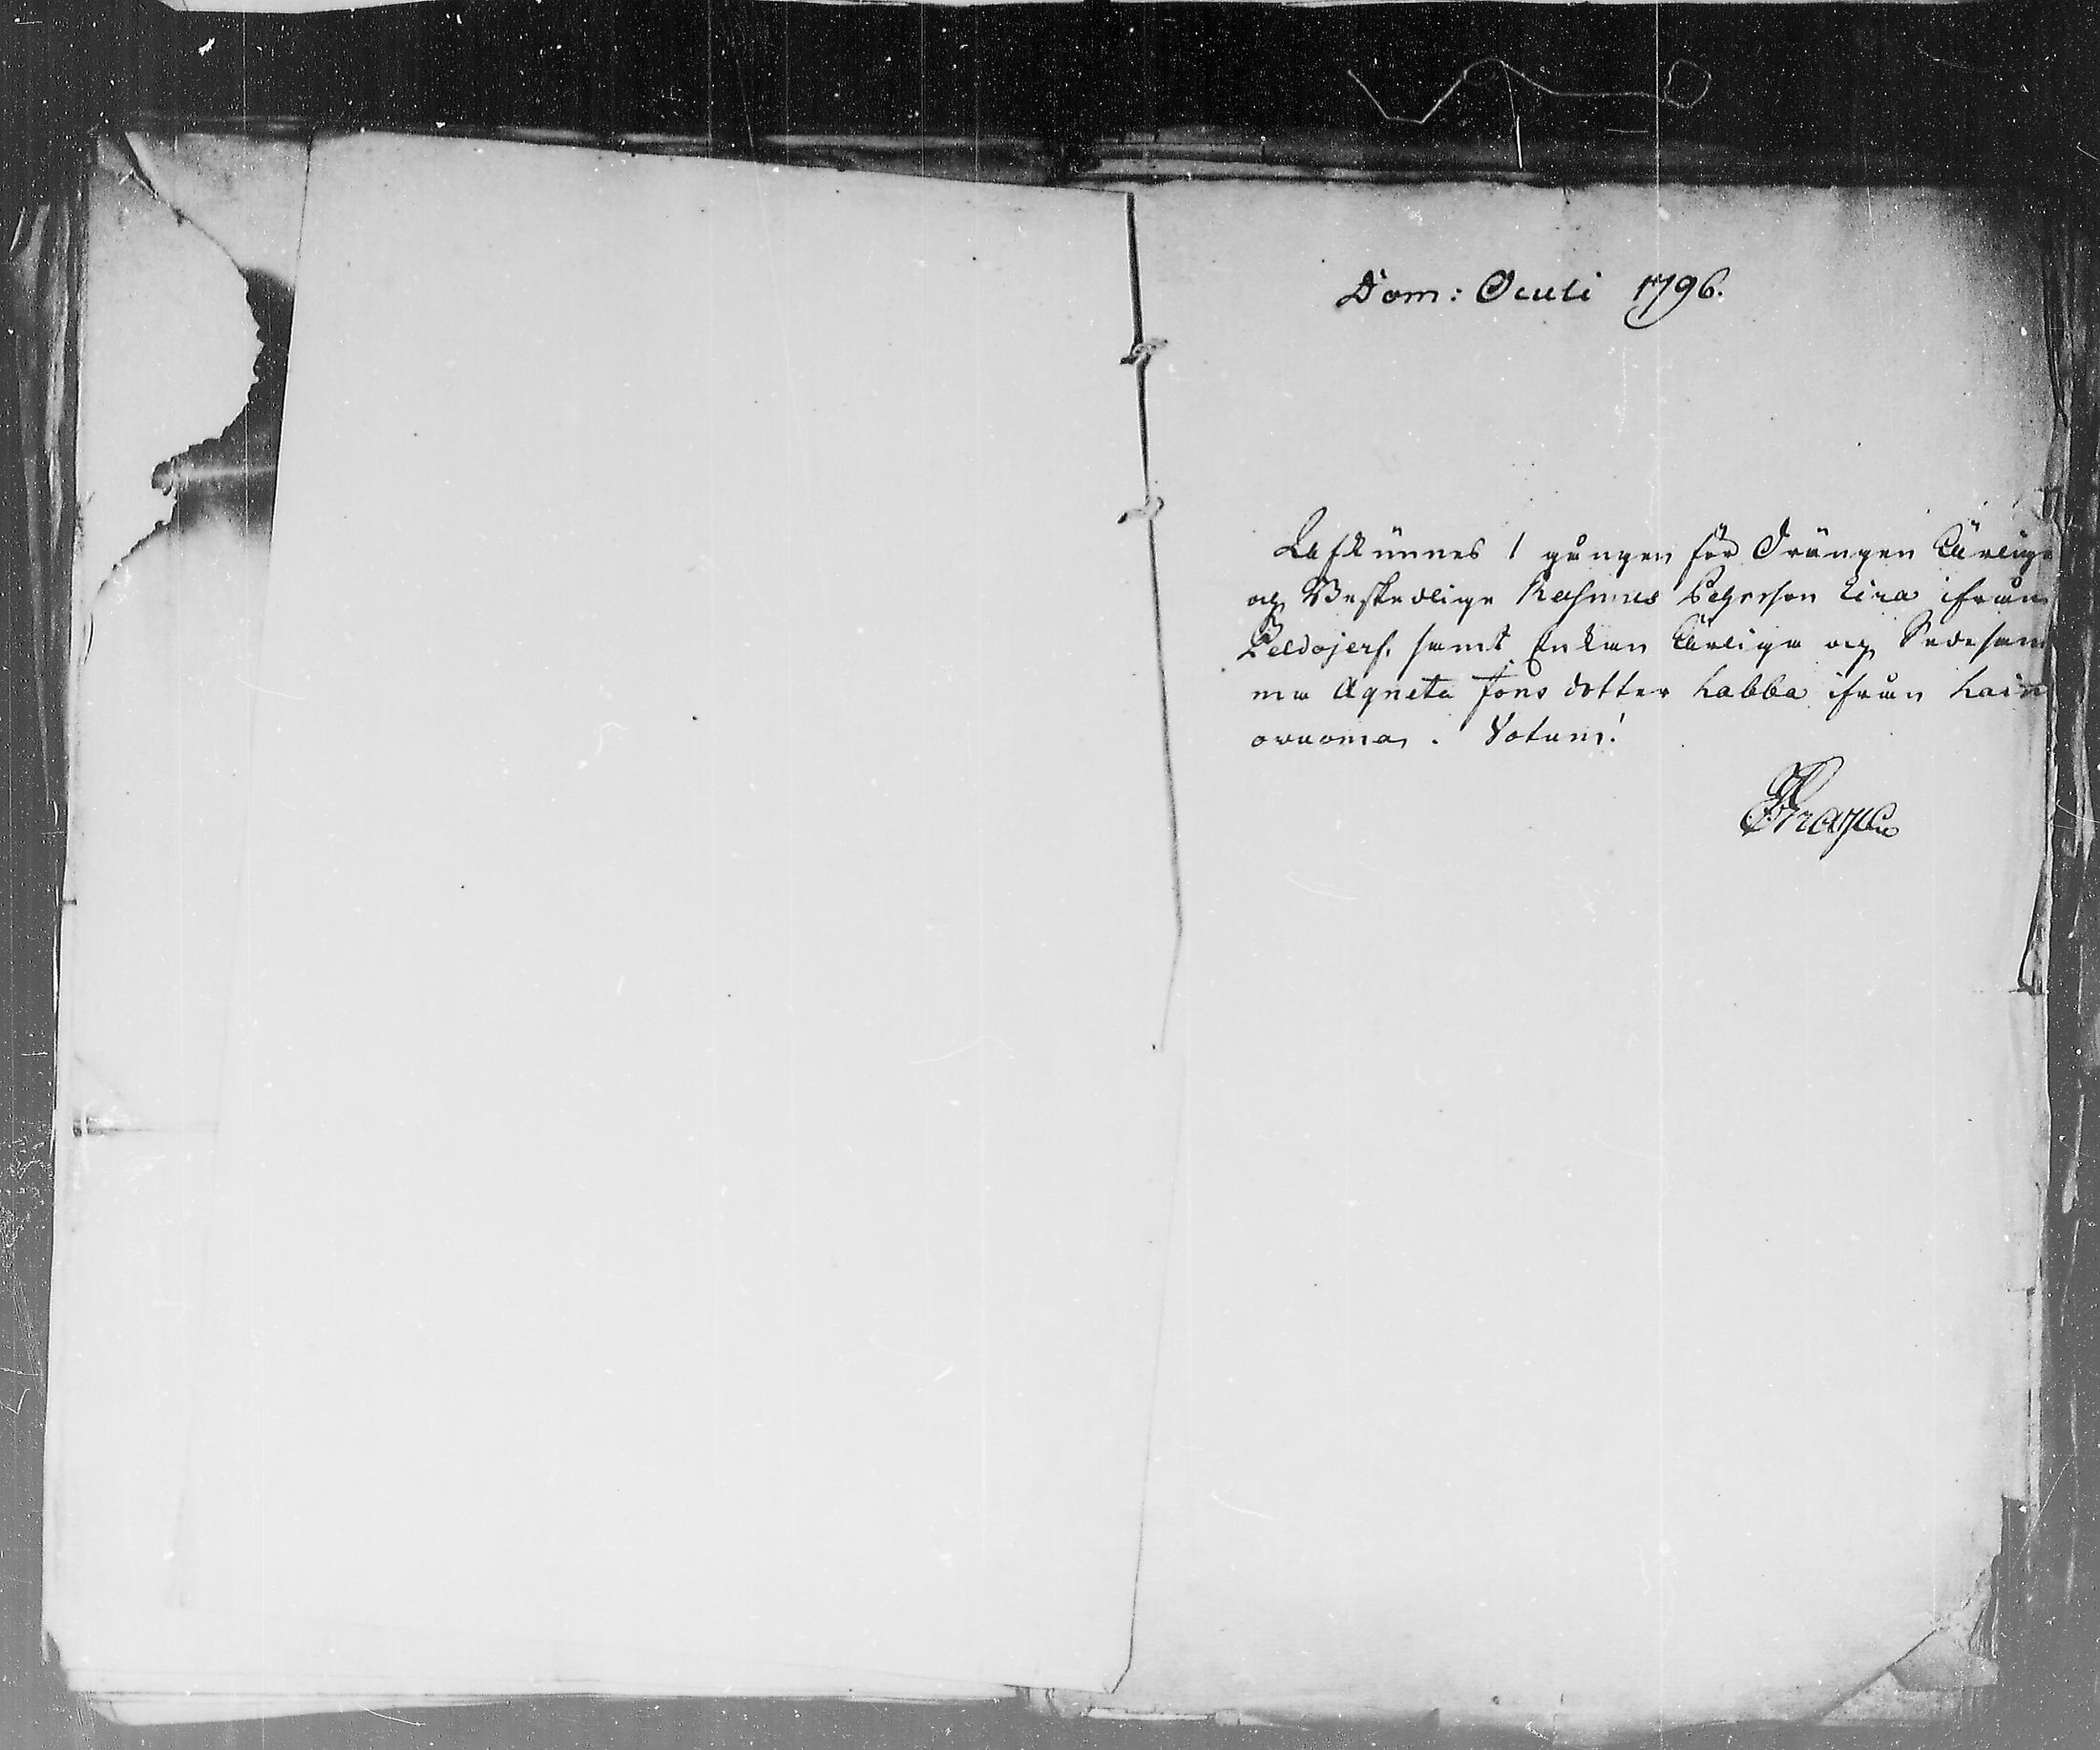 Dom: Oculi 1796.
Afkünnes 1 gången för Drängen Ährlige
og Beskedlige Rasmus Pehrsson Eira ifrån
Peldojerf, samt Enkan Ährliga og Sedesam
ma Agneta Jons dotter Labba ifrån Lain
owuoma. Votum!